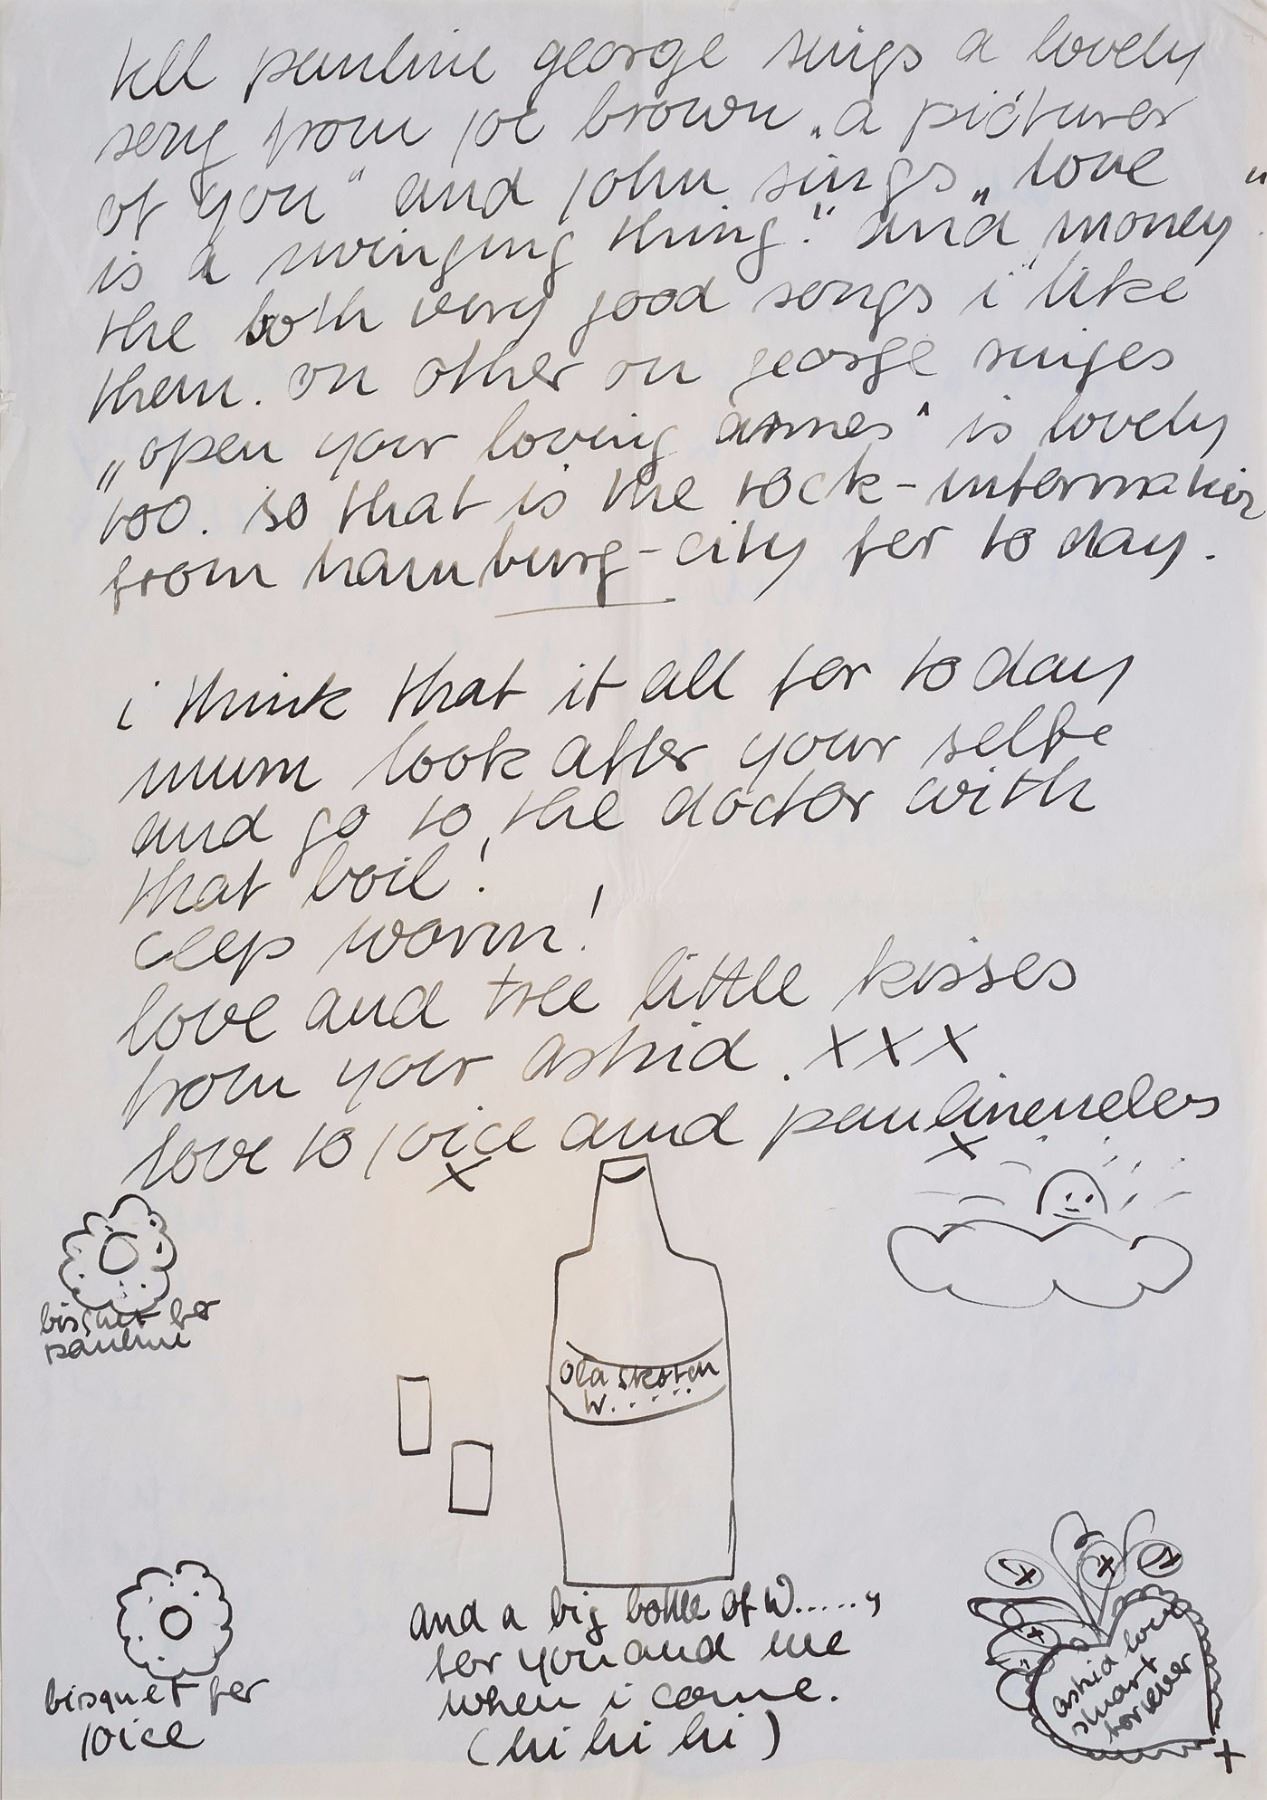 tell pauline george sings a lovely
song from joe brown „a picturer
of you“ and john sings „love
is a swinging thing“. and „money“
the both very good songs i like
them. on other on george singes
„open your loving armes“ is lovely
too. so that is the rock-information
from hamburg-city for to day.
i think that it all for to day
mum look after your selfe
and go to the doctor with
that boil!
ceep warm!
love and tree little kisses
from your astrid. xxx
love to joice and paulinenelers
x x
bisquet for
pauline
Old skotch
W......
bisquet for
joice
and a big bottle of W.....y
for you and me
when i come.
(hi hi hi)
astrid love
stuart
forever
+